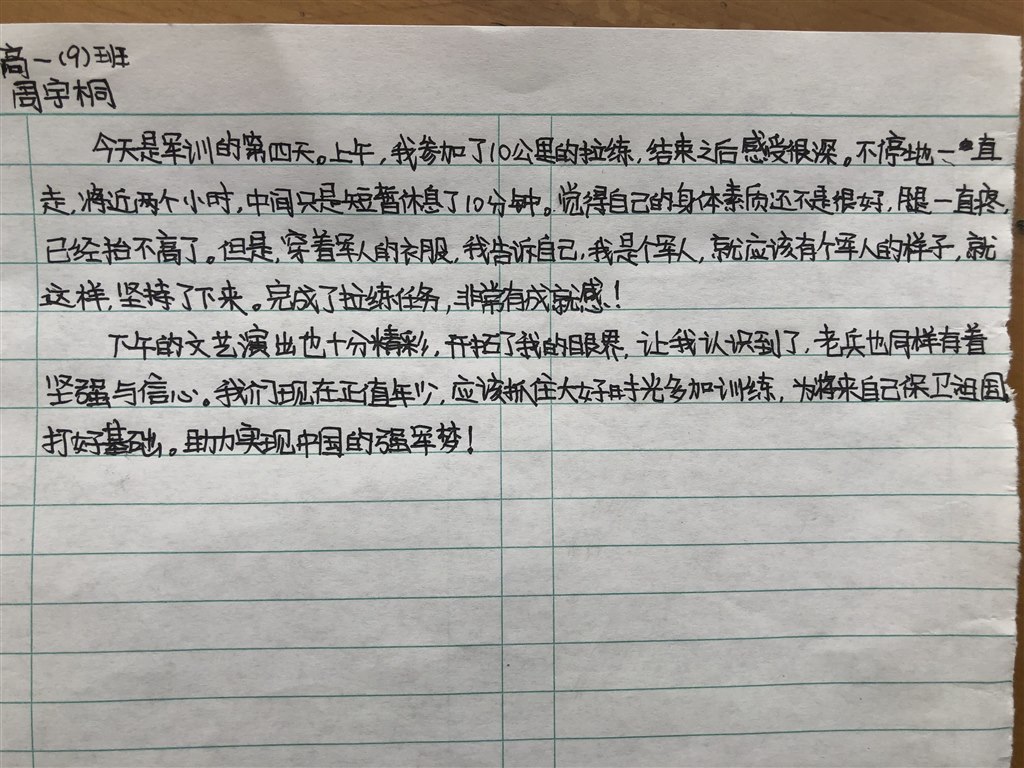 高一(9)班
周宇桐
今天是军训的第四天。上午,我参加了10公里的拉练,结束之后感受很深。不停地一直
走,将近两个小时,中间只是短暂休息了10分钟。觉得自己的身体素质还不是很好,腿一直疼,
已经抬不高了。但是,穿着军人的衣服,我告诉自己,我是个军人,就应该有个军人的样子,就
这样,坚持了下来。完成了拉练任务,非常有成就感!
下午的文艺演出也十分精彩,开拓了我的眼界,让我认识到了,老兵也同样有着
坚强与信心。我们现在正值年少,应该抓住大好时光多加训练,为将来自己保卫祖国
打好基础。助力实现中国的强军梦!